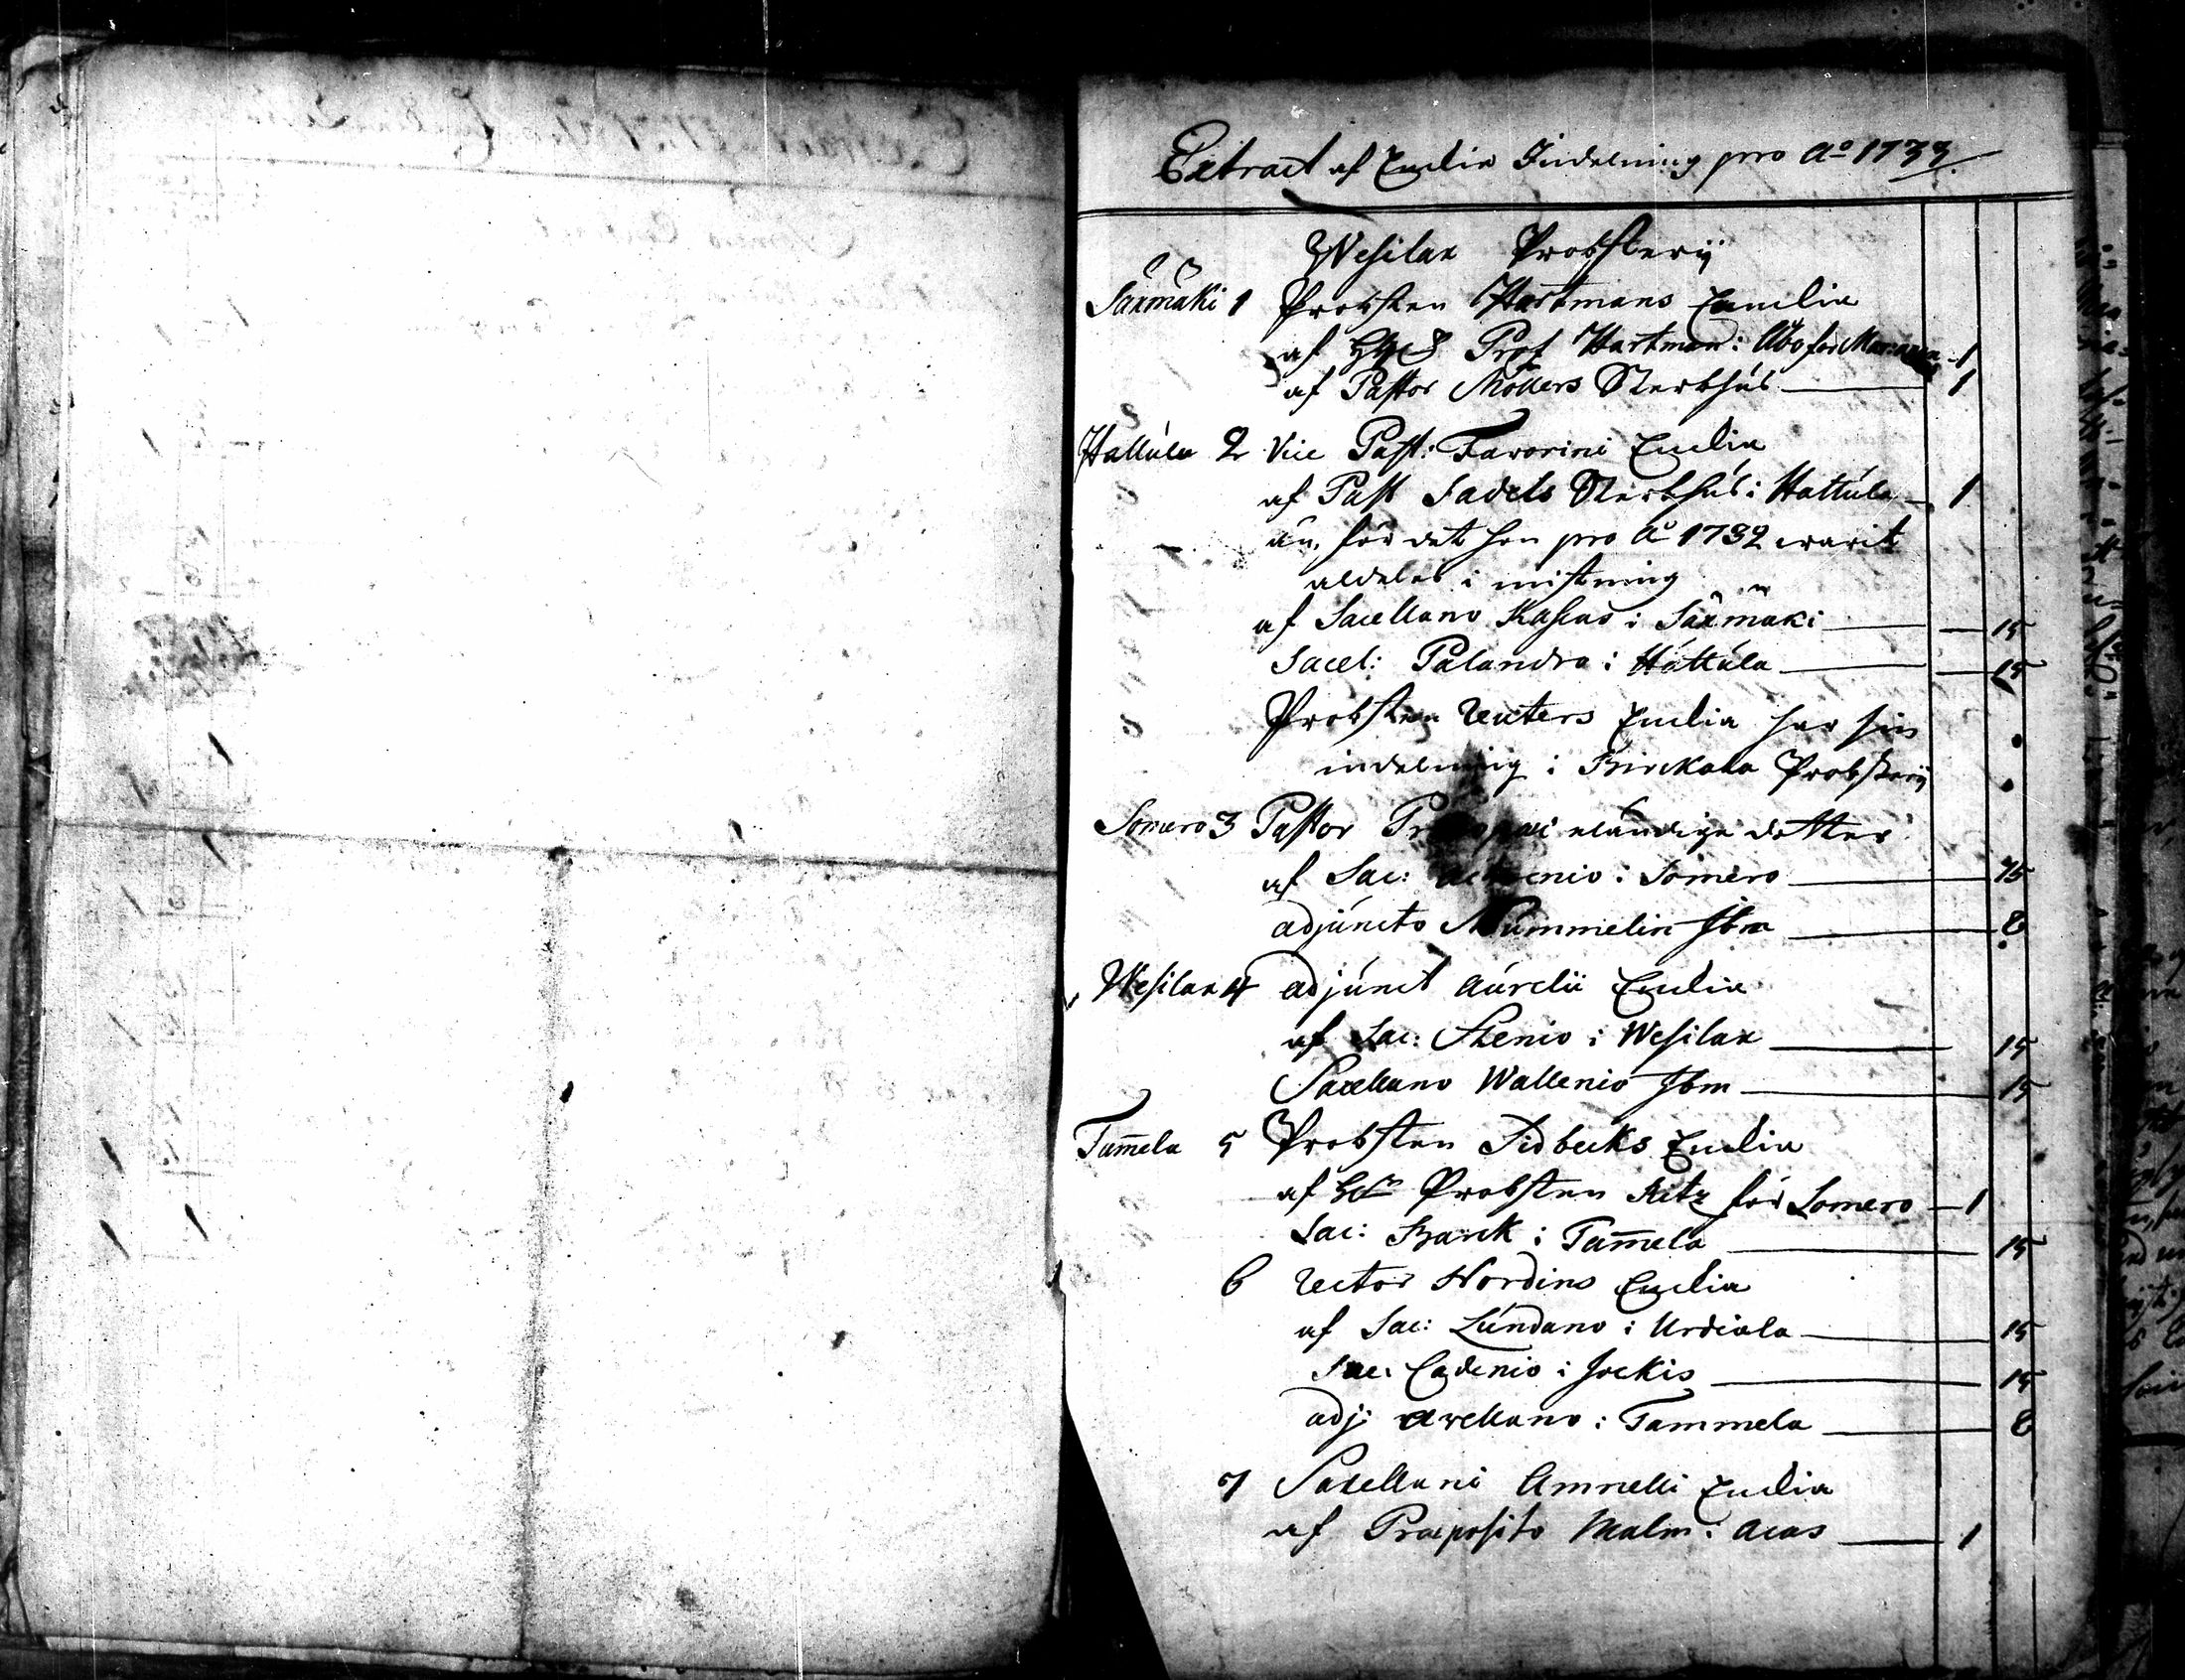 Extract af Enckia Indelning pro Ao 1733.
Wesilax Probsterij
Säxmäki 1 Probsten Hartmans Enckia
af Prof Hartman i Åbo för 1
af Pastor Möllers Sterbhús 1
Hattúla 2 Vice Past: Favorini Enckia
af Past Sadels Sterbhús i Hattúla 1
än, för det hon pro Ao 1732 warit
aldeles i mistning
af Sacellano i Säxmäki 15
Sacel: Palandro i Háttúla 15
Probsten Reuters Enckia har sin
indelning i Birckala Probsterij
Somero 3 Pastor eländige dotter
af Sac: i Somero 15
adjúncto Nummelin Ibm 8
Wesilax 4 adjúnct Aúrelii Enckia
af Sac: Stenio i Wesilax 15
Sacellano Wallenio Ibm 15
Tam̄ela 5 Probsten Sidbecks Enckia
af Probsten Ritz för Somero 1
Sac: Barck i Tam̄ela 15
6 Rector Nordins Enckia
af Sac: Lúndano i Urdiala 15
Sac: Cadenio i Jockis 15
adj: Avellano i Tammela 8
7 Sacellani Amnelli Enckia
af Præposito Malm i Acas 1